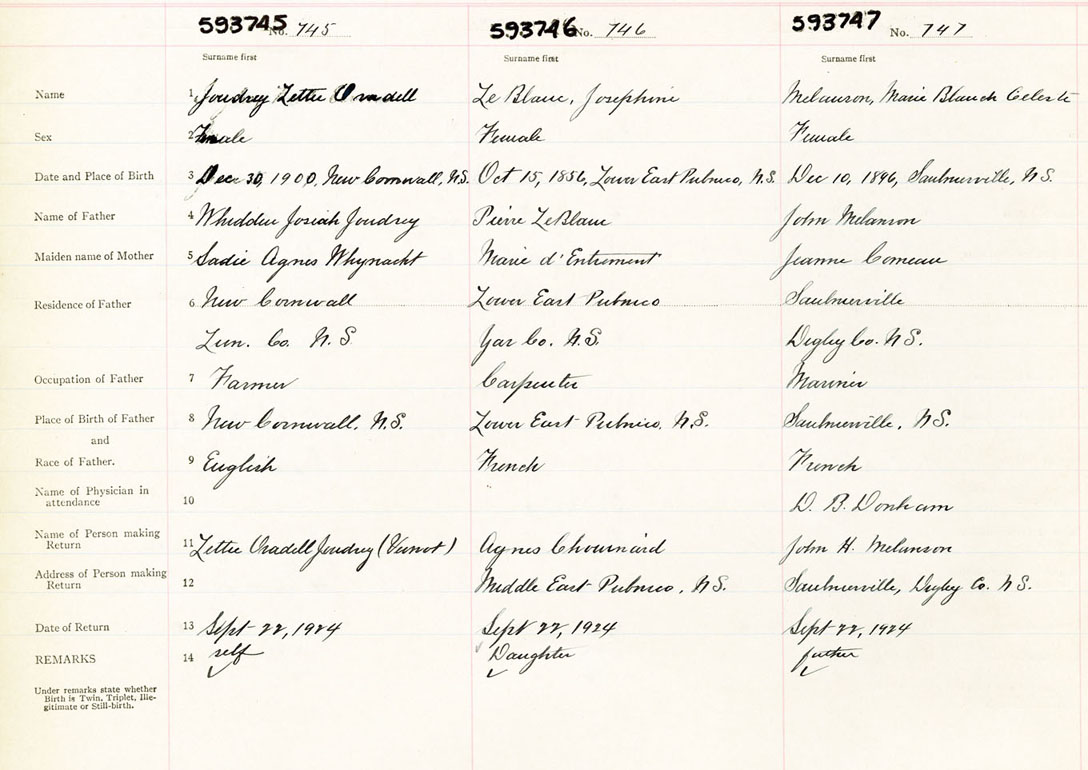 593745 No. 745 593746 No. 746 593747 No. 747
Surname first Surname first Surname first
Name 1 Joudrey Lettie Oradell Le Blanc, Josephine Melanson, Marie Blanch Celeste
Sex 2 Female Female Female
Date and Place of Birth 3 Dec 30, 1900, New Cornwall, N.S. Oct 15, 1856, Lower East Pubnico, N.S. Dec 10, 1896, Saulnierville, N.S.
Name of Father 4 Whidden Josiah Joudrey Pierre LeBlanc John Melanson
Maiden name of Mother 5 Sadie Agnes Whynacht Marie d'Entremont Jeanne Comeau
Residence of Father 6 New Cornwall Lower East Pubnico Saulnierville
Lun. Co. N.S. Yar Co. N.S. Digby Co. N.S.
Occupation of Father 7 Farmer Carpenter Mariner
Place of Birth of Father 8 New Cornwall, N.S. Lower East Pubnico, N.S. Saulnierville, N.S.
and
Race of Father. 9 English French French
Name of Physician in
attendance 10 D. B. Donham
Name of Person making
Return 11 Lettie Oradell Joudrey (Veinot) Agnes Chouinard John H. Melanson
Address of Person making
Return 12 Middle East Pubnico, N.S. Saulnierville, Digby Co. N.S.
Date of Return 13 Sept 22, 1924 Sept 22, 1924 Sept 22, 1924
REMARKS 14 self Daughter father
Under remarks state whether
Birth is Twin, Triplet, Ille-
gitimate or Still-birth.